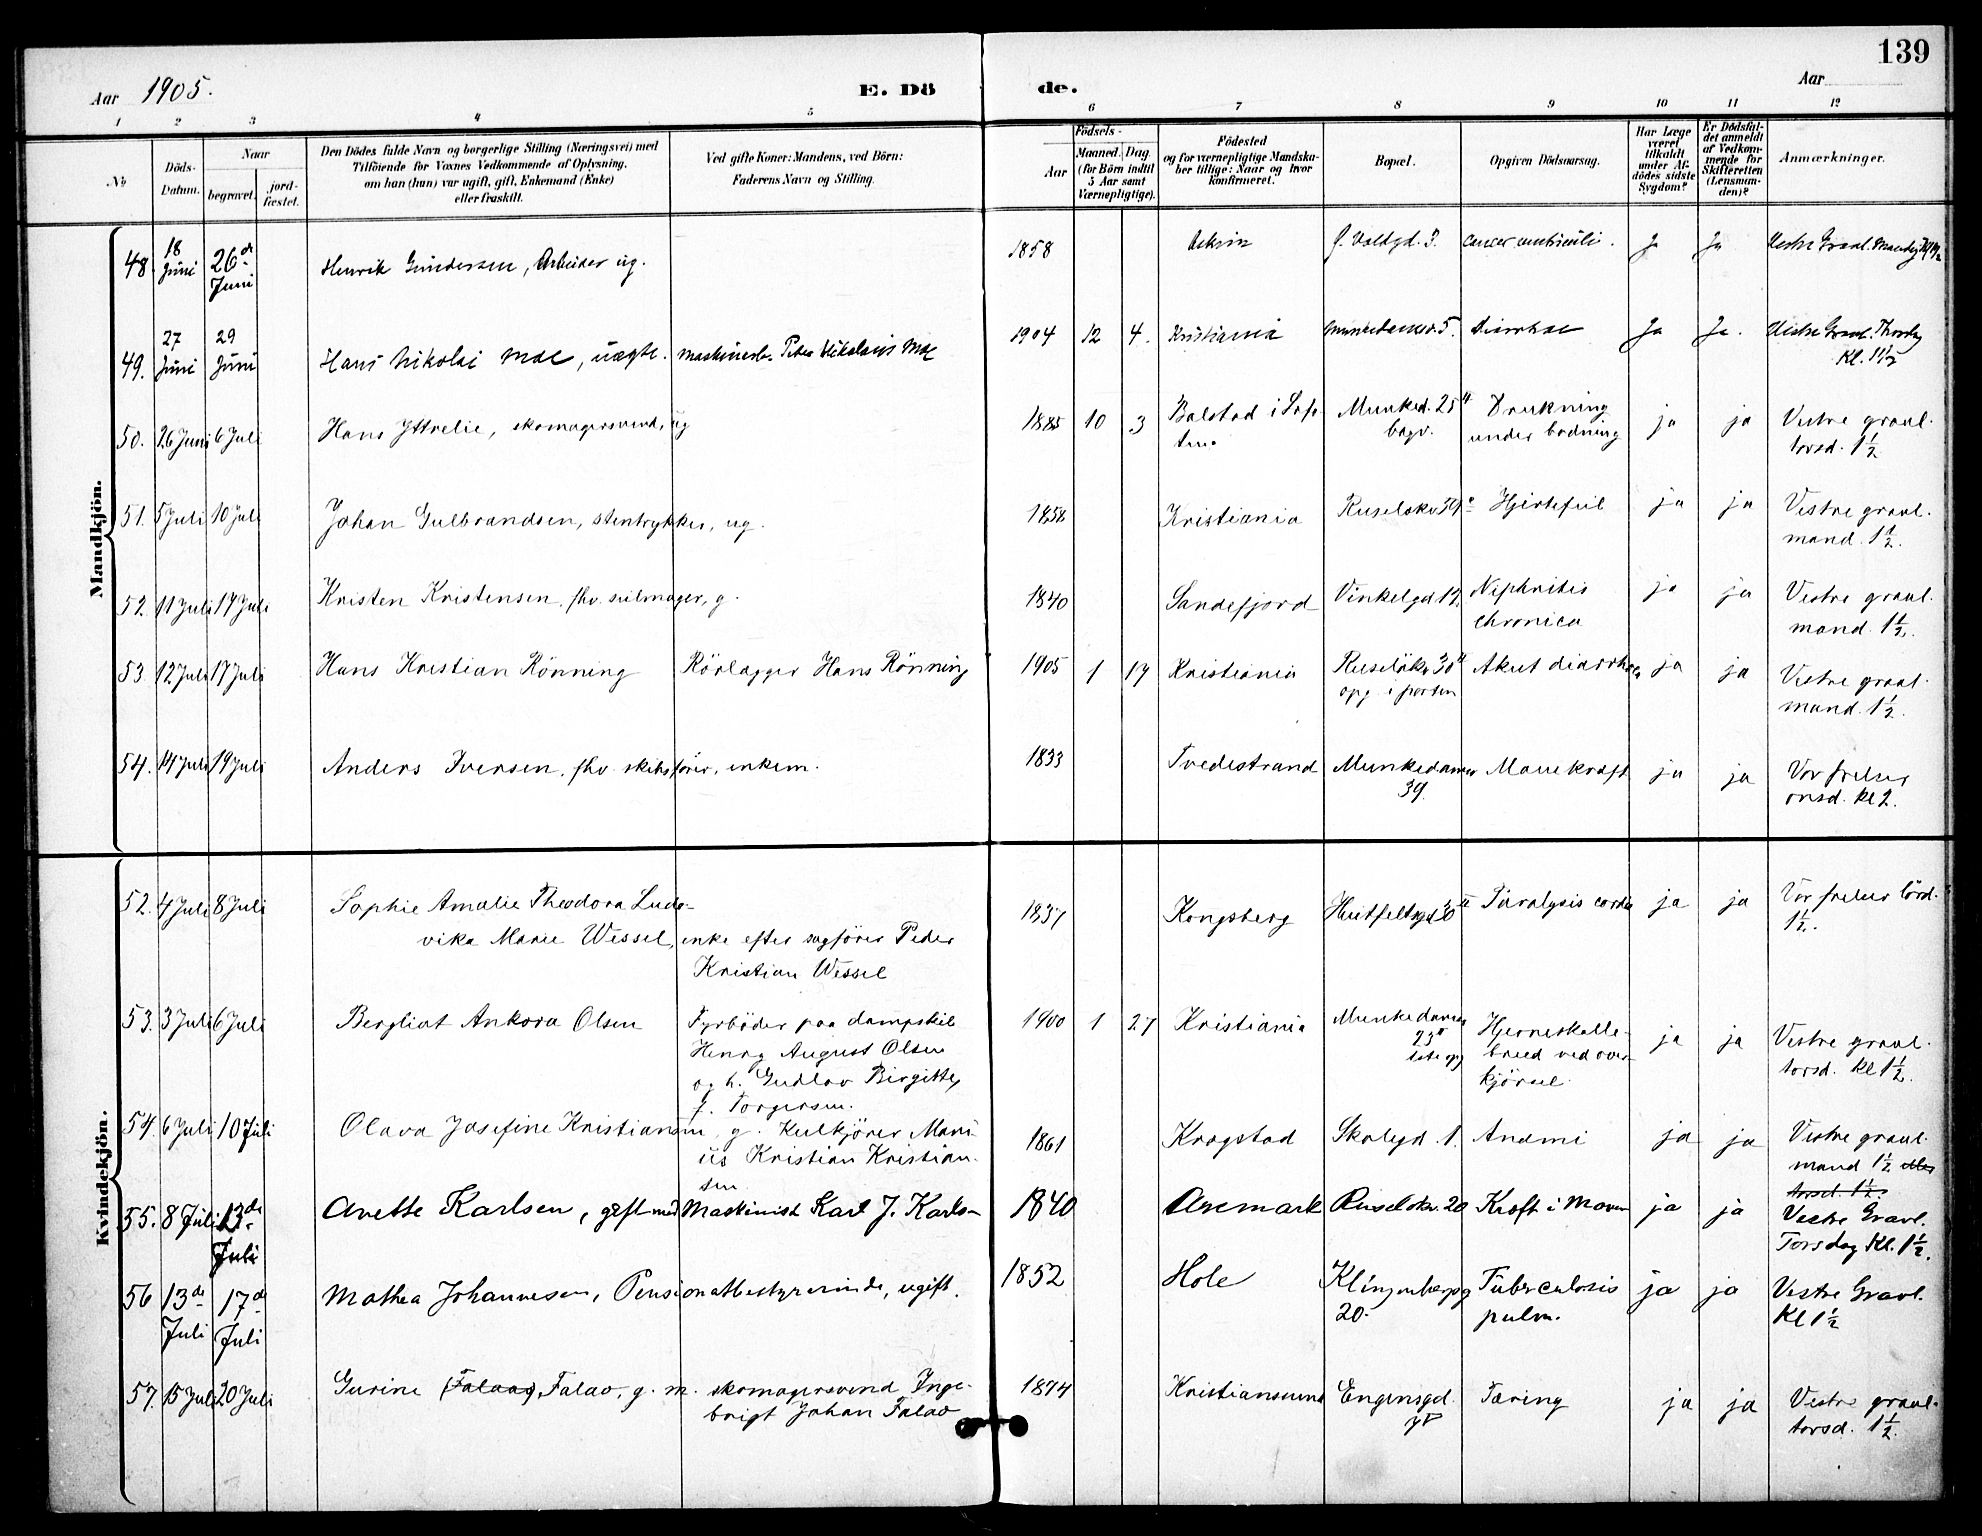 139
Aar 1905.
E. Dö
de.
Aar
1 2 3 4 5 6 7 8 9 10 11 12
No
Döds-
Datum.
Naar
begravet.
jord-
fæstet.
Den Dödes fulde Navn og borgerlige Stilling (Næringsvei) med
Tilföiende for Voxnes Vedkommende af Oplysning,
om han (hun) var ugift, gift, Enkemand (Enke)
eller fraskilt.
Ved gifte Koner: Mandens, ved Börn:
Faderens Navn og Stilling.
Födsels-
Aar
Maaned. Dag
(for Börn indtil
5 Aar samt
Værnepligtige).
Födested
og for værnepligtige Mandska-
ber tillige: Naar og hvor
konfirmeret.
Bopæl.
Opgiven Dödsaarsag.
Har Læge
været
tilkaldt
under Af-
dödes sidste
Sygdom?
Er Dödsfal-
det anmeldt
af Vedkom-
mende for
Skifteretten
(Lensman-
den)?
Anmærkninger.
Mandkjön.
48. 18 Juni 26de Juni Henrik Gundersen, Arbeider ug. 1858 Askim Ja Ja Vestre Gravl.
49. 27 Juni 29 Juni Hans Nikolai Moe, uægte. Peder Nikolaus Moe 1904 12 4. Kristiania Munkedamsv. 5. Diarrhae Ja Ja. Vestre Gravl. Thorsdag
Kl. 1½
50. 26 Juni 6 Juli Hans Yttrelie, skomagersvend, ug 1885 10 3 Balstad i Lofo-
ten. Munked. 25
bagv. Drukning
under badning ja ja Vestre gravl.
torsd. 1½
51. 5 Juli 10 Juli Johan Gulbrandsen, stentrykker, ug. 1858 Kristiania Ruselökv. Hjertefeil ja ja Vestre gravl.
mand. 1½.
52. 11 Juli 17 Juli Kristen Kristensen, fhv. seilmager, g. 1840 Sandefjord Vinkelgd 12. Nephritis
chronica ja ja Vestre gravl.
mand. 1½.
53. 12 Juli 17 Juli Hans Kristian Rönning Rörlægger Hans Rönning 1905 1 17 Kristiania Ruselökv 30
opg i porten Akut diarrhoea ja ja Vestre gravl.
mand. 1½.
54. 14 Juli 19 Juli Anders Iversen, fhv. skibsförer, enkem. 1833 Tvedestrand Munkedamsv
39. Mavekræft ja ja Vor frelser
onsd. kl 2.
Kvindekjön.
52. 4 Juli 8 Juli Sophie Amalie Theodora Ludo-
vika Marie Wessel, enke efter sagförer Peder
Kristian Wessel 1837 Kongsberg Huitfeltsgd 30 Paralysis cordis ja ja Vor frelser lörd.
1½.
53. 3 Juli 6 Juli Bergliot Ankora Olsen Fyrböder paa dampskib
Henry August Olsen
og h. Gudlov Birgitte,
f. Torgersen. 1900 1 27 Kristiania Munkedamsv
23 Hjerneskalle-
brud ved over-
kjörsel. ja ja Vestre gravl.
torsd. kl 1½.
54 6 Juli 10 Juli Olava Josefine Kristiansen, g. Kulkjörer Mari-
us Kristian Kristian-
sen 1861 Kragstad Skolegd. 1. Anæmi ja ja Vestre gravl.
mand 1½
torsd. 1½.
55. 8 Juli 13de Juli Anette Karlsen, gift med Maskinist Karl J. Karlsen 1840 Aremark Ruselökv. 20 Kræft i Maven ja ja Vestre Gravl.
Torsdag Kl. 1½.
56 13de Juli 17de Juli Mathea Johannesen, Pensionatbestyrerinde, ugift. 1852 Hole Klingenbergg
20. Tuberculosis
pulm. ja ja Vestre Gravl.
Kl 1½
57. 15 Juli 20 Juli Gurine (Falaas), Falao, g. m. skomagersvend Inge-
brigt Johan Falao 1874 Kristianssund Engensgd.
7 Tæring ja ja Vestre gravl.
torsd. 1½.